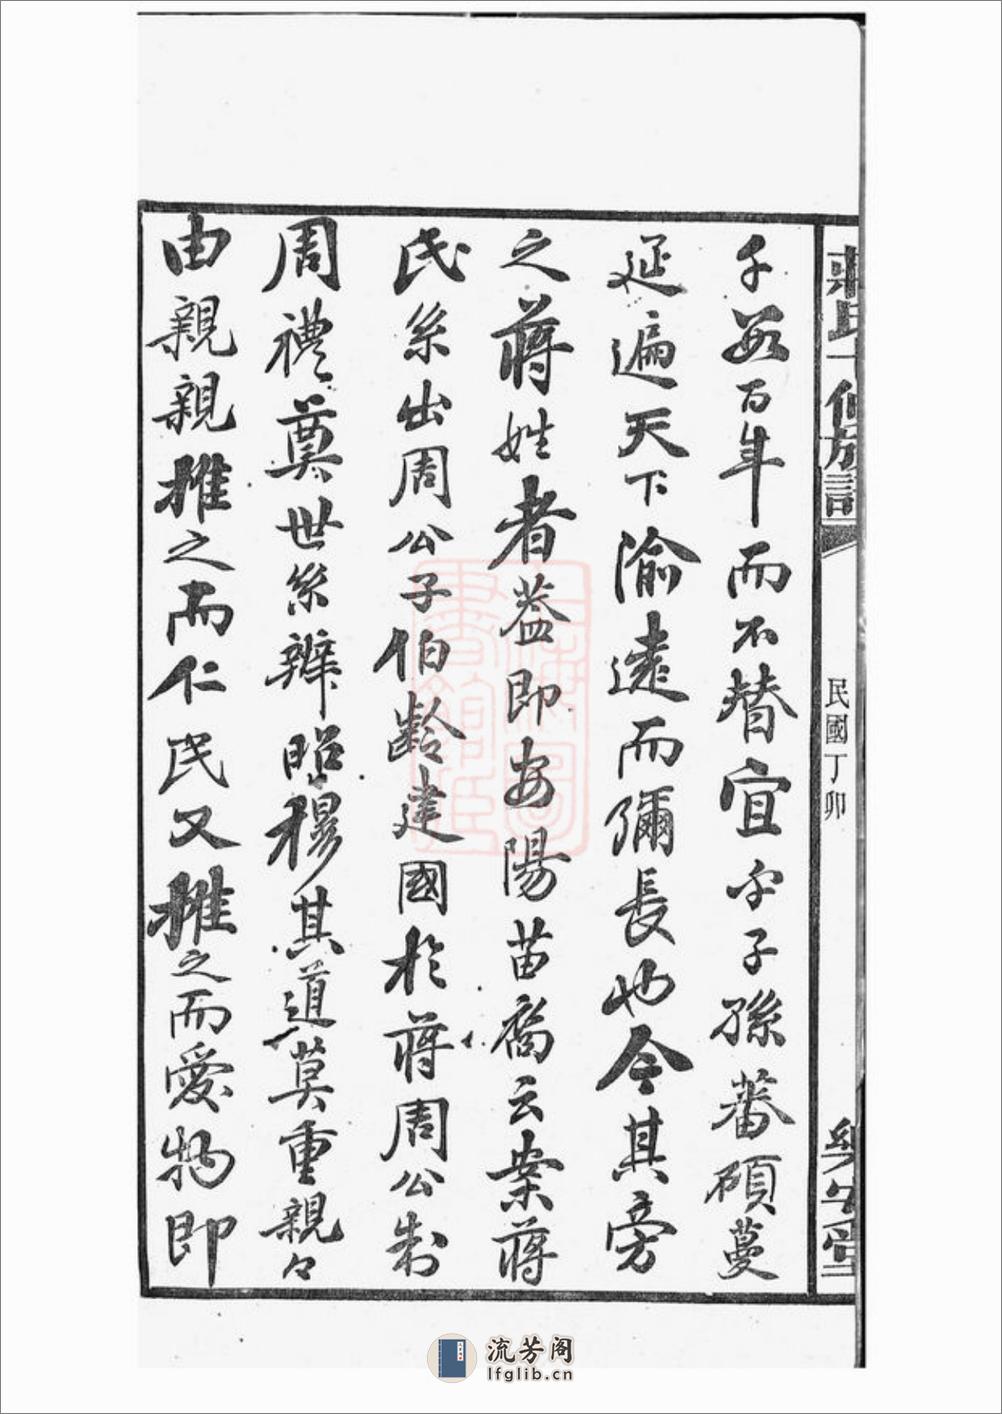 千百年而不替宜乎子孫蕃碩蔓
延遍天下逾遠而彌長也今其旁
之蔣姓者蓋即安陽苗裔云案蔣
氏系出周公子伯齡建國於蔣周公制
周禮奠世系辨昭穆其道莫重親々
由親親推之而仁民又推之而愛物即
民國丁卯
上海圖
書館臧
流芳阁
lfglib.cn